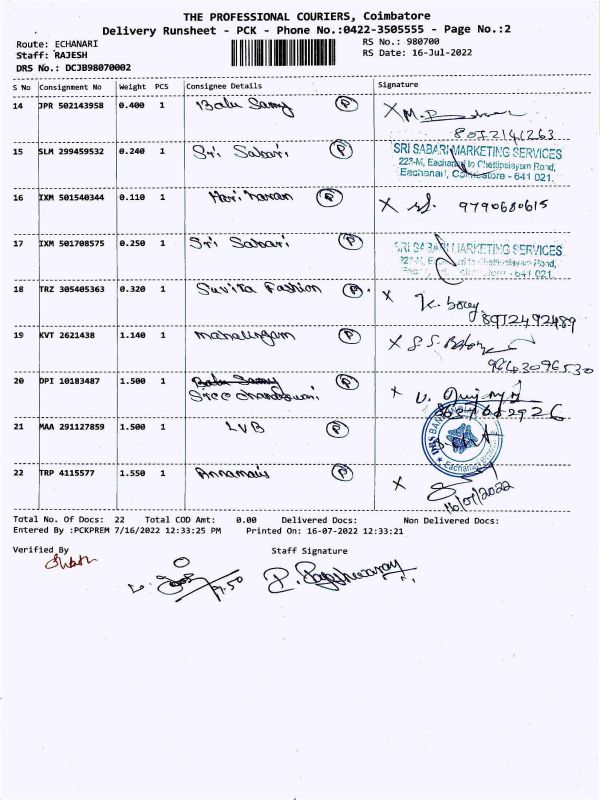 THE PROFESSIONAL COURIERS, Coimbatore
Delivery Runsheet - PCK - Phone No.:0422-3505555 - Page No.:2
Route: ECHANARI RS No.: 980700
Staff: RAJESH RS Date: 16-Jul-2022
DRS No.: DCJB98070002
S No Consignment No Weight PCS Consignee Details Signature
14 JPR 502143958 0.400 1 Balu Samy P X M.
15 SLM 299459532 0.240 1 Sri Sabari P SRI SABARI MARKETING SERVICES
223-M, Eachanari to Chettipalayam Road,
Eachanari, Coimbatore - 641 021.
16 IXM 501540344 0.110 1 Hari haran P X 9790680615
17 IXM 501708575 0.250 1 Sri Sabari P SRI SABARI MARKETING SERVICES
18 TRZ 305405363 0.320 1 Suvira Fashion P X
8912492489
19 KVT 2621438 1.140 1 mahalingam P X
20 DPI 10183487 1.500 1 Balu Samy P X
Sree
21 MAA 291127859 1.500 1 LVB P
22 TRP 4115577 1.550 1 Annamais P X
16/07/2022
Total No. Of Docs: 22 Total COD Amt: 0.00 Delivered Docs: Non Delivered Docs:
Entered By :PCKPREM 7/16/2022 12:33:25 PM Printed On: 16-07-2022 12:33:21
Verified By Staff Signature